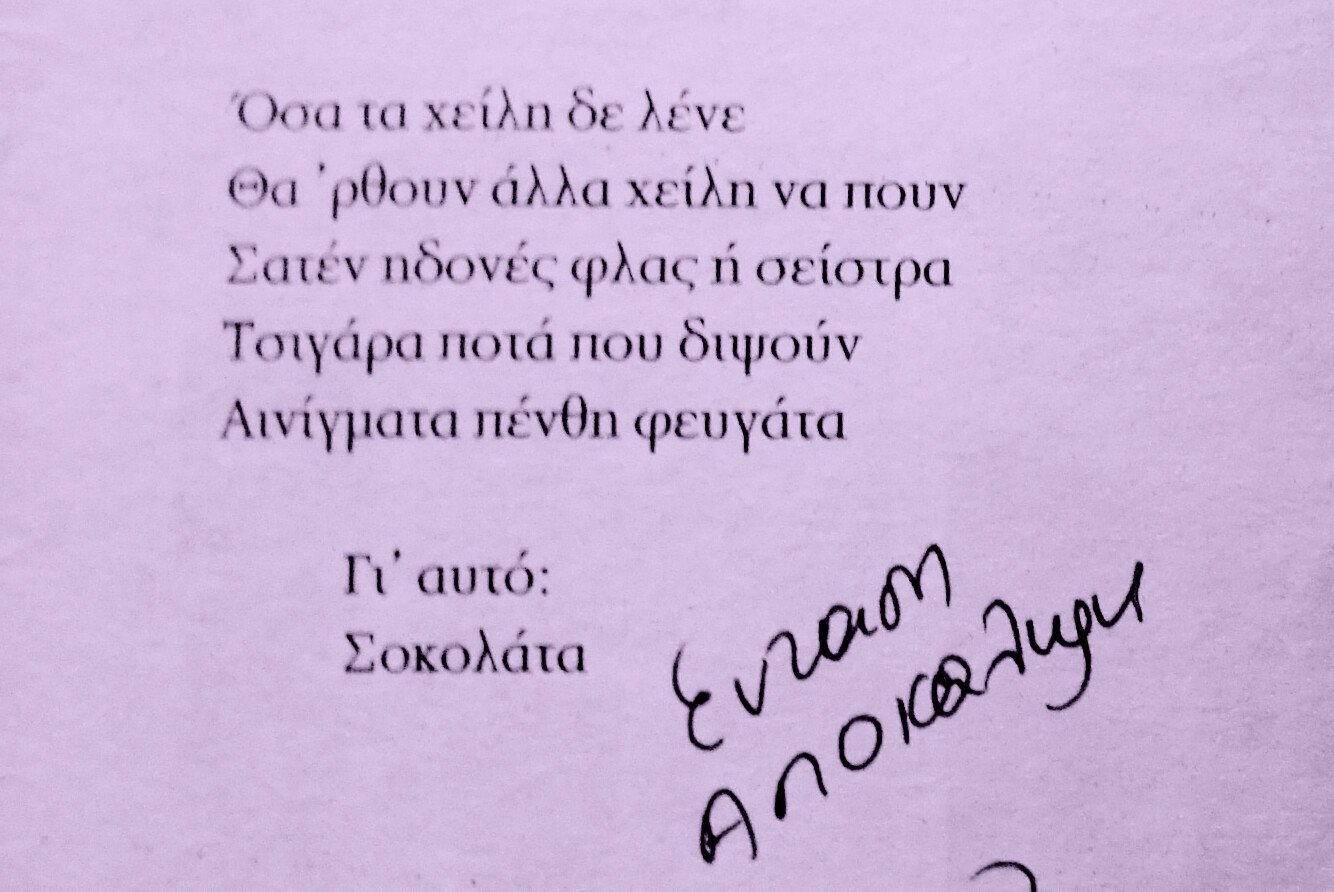 Όσα τα χείλη δε λένε
Θα ᾿ρθουν άλλα χείλη να πουν
Σατέν ηδονές φλας ή σείστρα
Τσιγάρα ποτά που διψούν
Αινίγματα πένθη φευγάτα
Γι᾿ αυτό:
Σοκολάτα
Ενταση